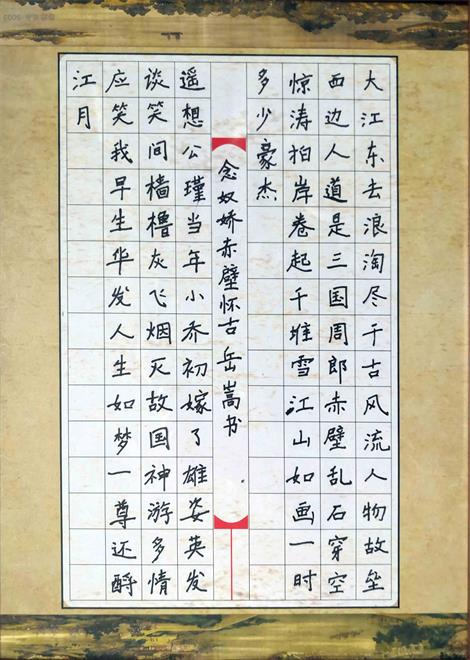 大江东去浪淘尽千古风流人物故垒
西边人道是三国周郎赤壁乱石穿空
惊涛拍岸卷起千堆雪江山如画一时
多少豪杰
念奴娇赤壁怀古 岳嵩书
遥想公瑾当年小乔初嫁了雄姿英发
谈笑间樯橹灰飞烟灭故国神游多情
应笑我早生华发人生如梦一尊还酹
江月